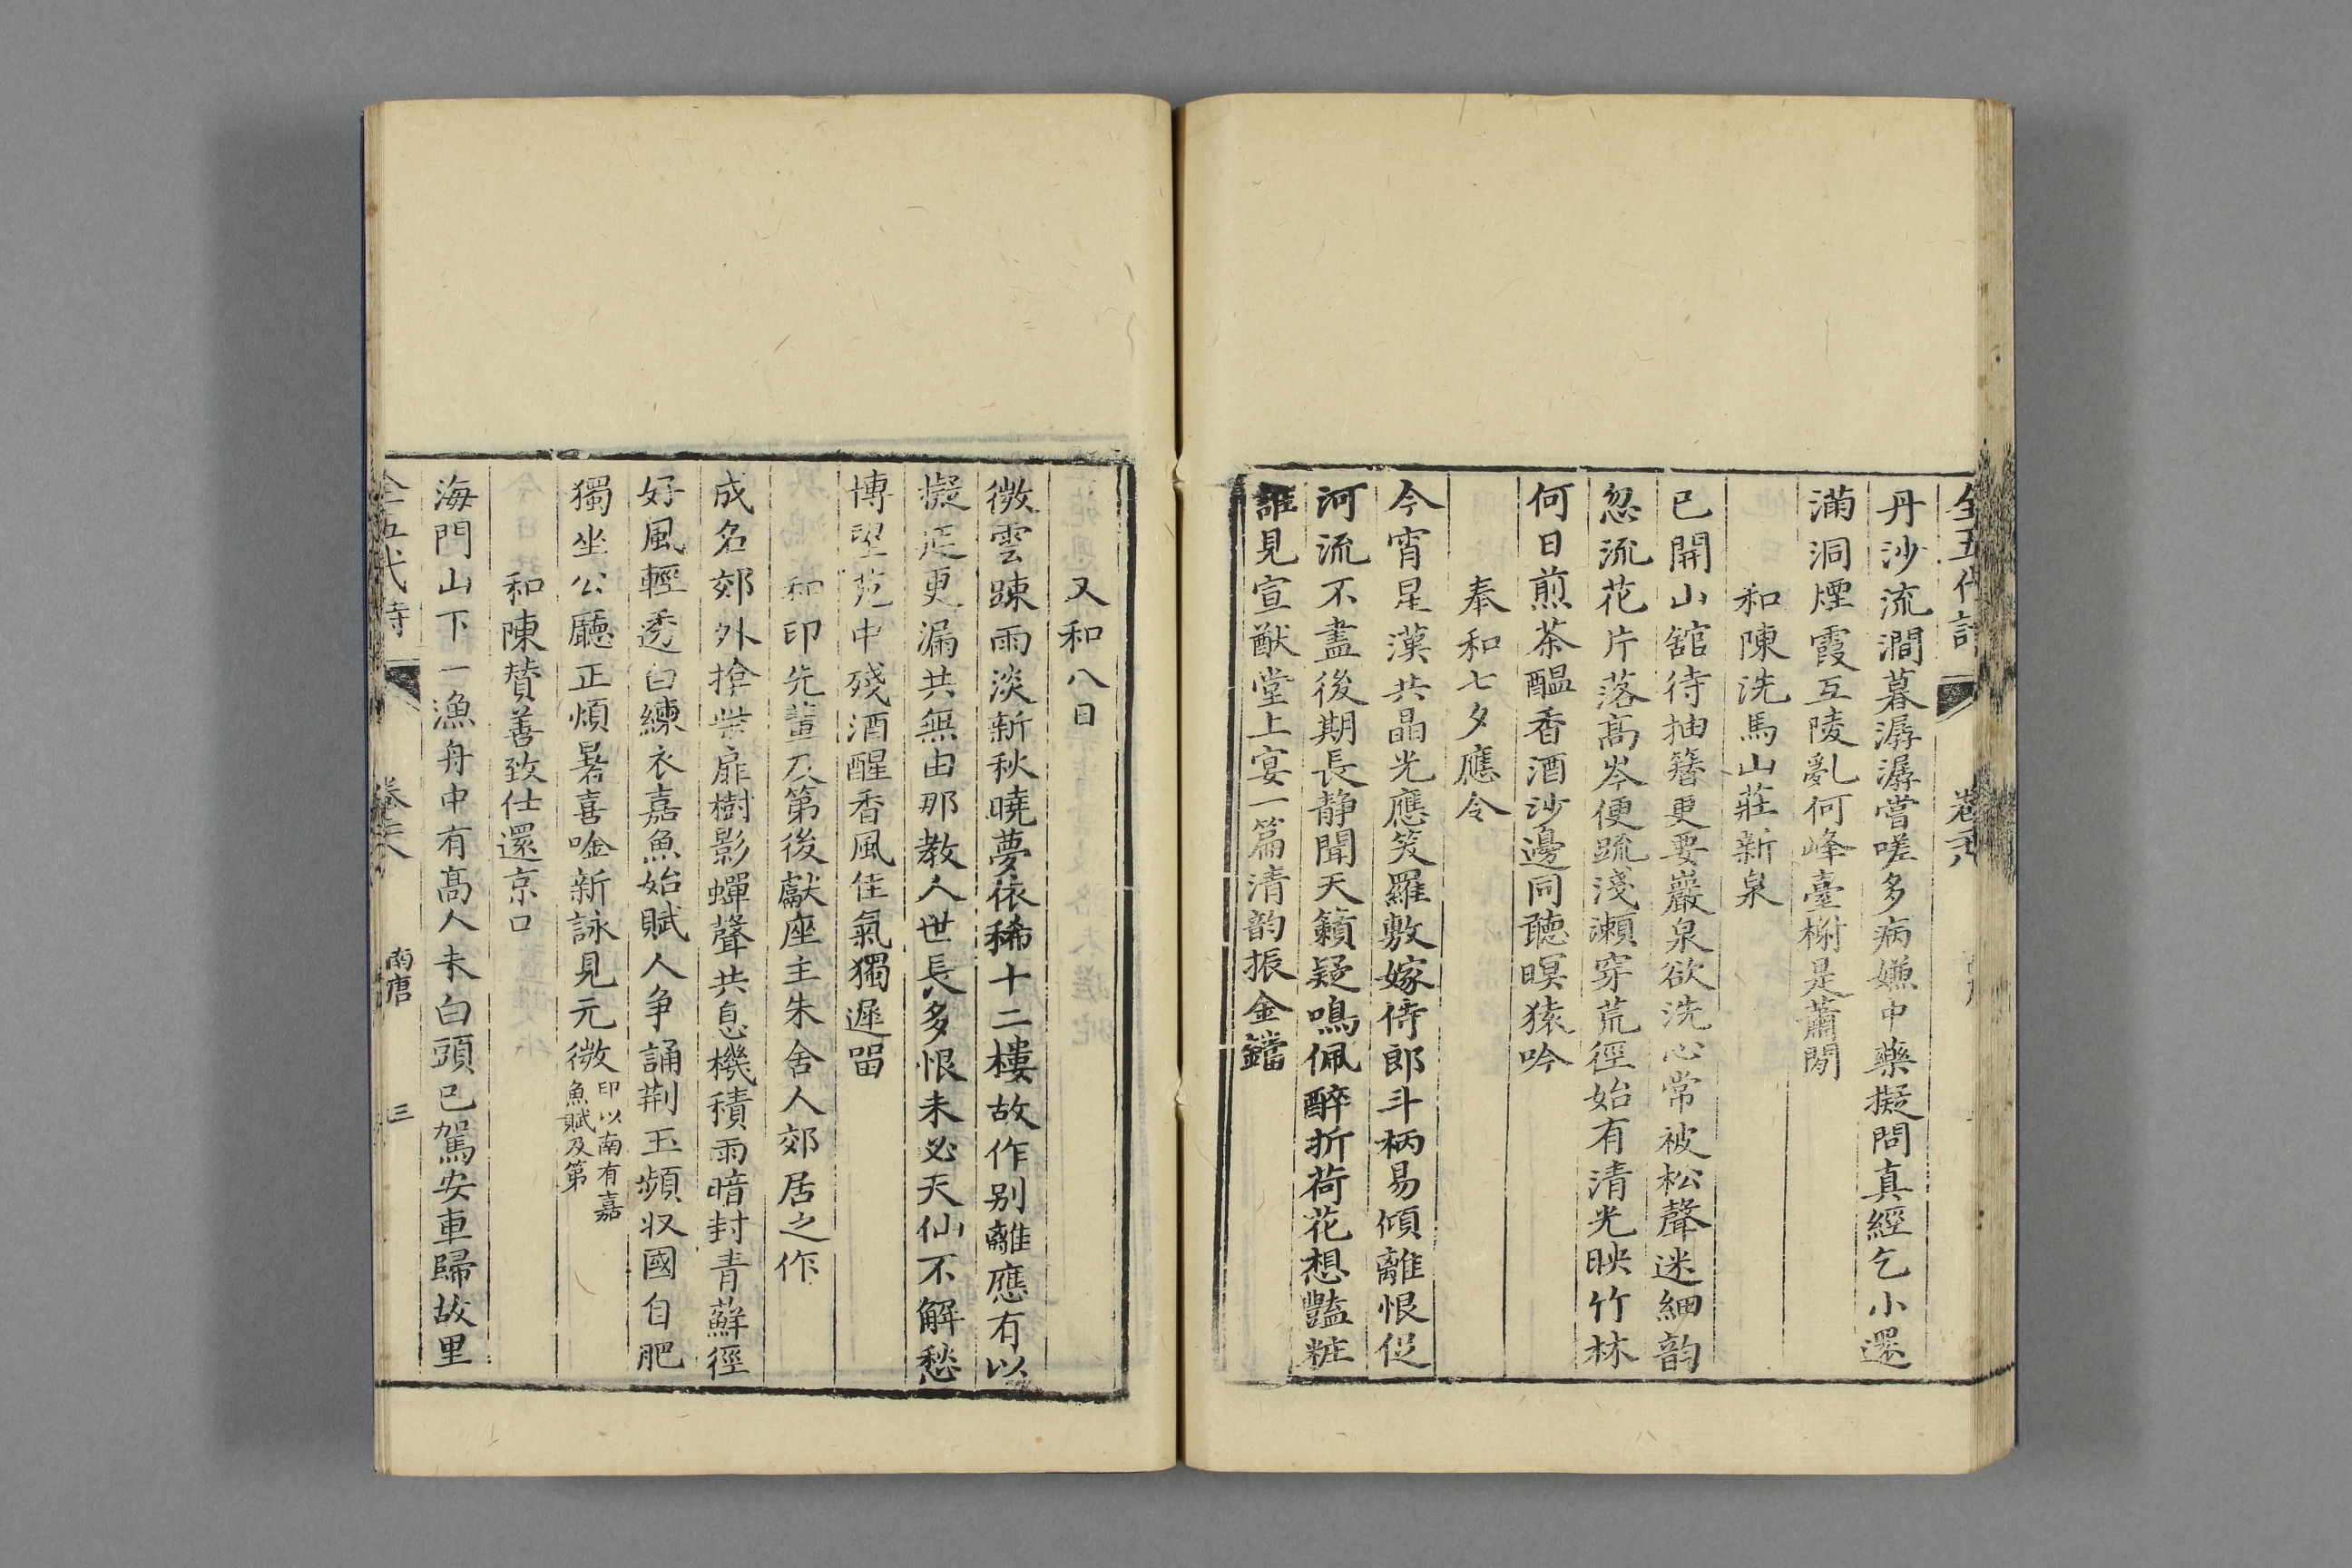 全五代詩 卷
丹沙流澗暮潺潺嘗嗟多病嫌中藥擬問真經乞小還
滿洞煙霞互陵亂何峰臺榭是蕭閒
和陳洗馬山莊新泉
已開山舘待抽簪更要巖泉欲洗心常被松聲迷細韵
忽流花片落高岑便疏淺瀨穿荒徑始有清光映竹林
何日煎茶醖香酒沙邊同聽暝猿吟
奉和七夕應令
今宵星漢共晶光應笑羅敷嫁侍郎斗柄易傾離恨促
河流不盡後期長静聞天籟疑鳴佩醉折荷花想豔粧
誰見宣猷堂上宴一篇清韵振金鐺
又和八日
微雲踈雨淡新秋曉夢依稀十二樓故作别離應有以
擬延更漏共無由那教人世長多恨未必天仙不解愁
博望苑中殘酒醒香風佳氣獨遲畱
和印先輩及第後獻座主朱舍人郊居之作
成名郊外掩柴扉樹影蟬聲共息機積雨暗封青蘚徑
好風輕透白練衣嘉魚始賦人争誦荆玉頻収國自肥
獨坐公廳正煩暑喜唫新詠見元微印以南有嘉
魚賦及第
和陳贊善致仕還京口
海門山下一漁舟中有高人未白頭已駕安車歸故里
全五代詩 卷 南唐 三